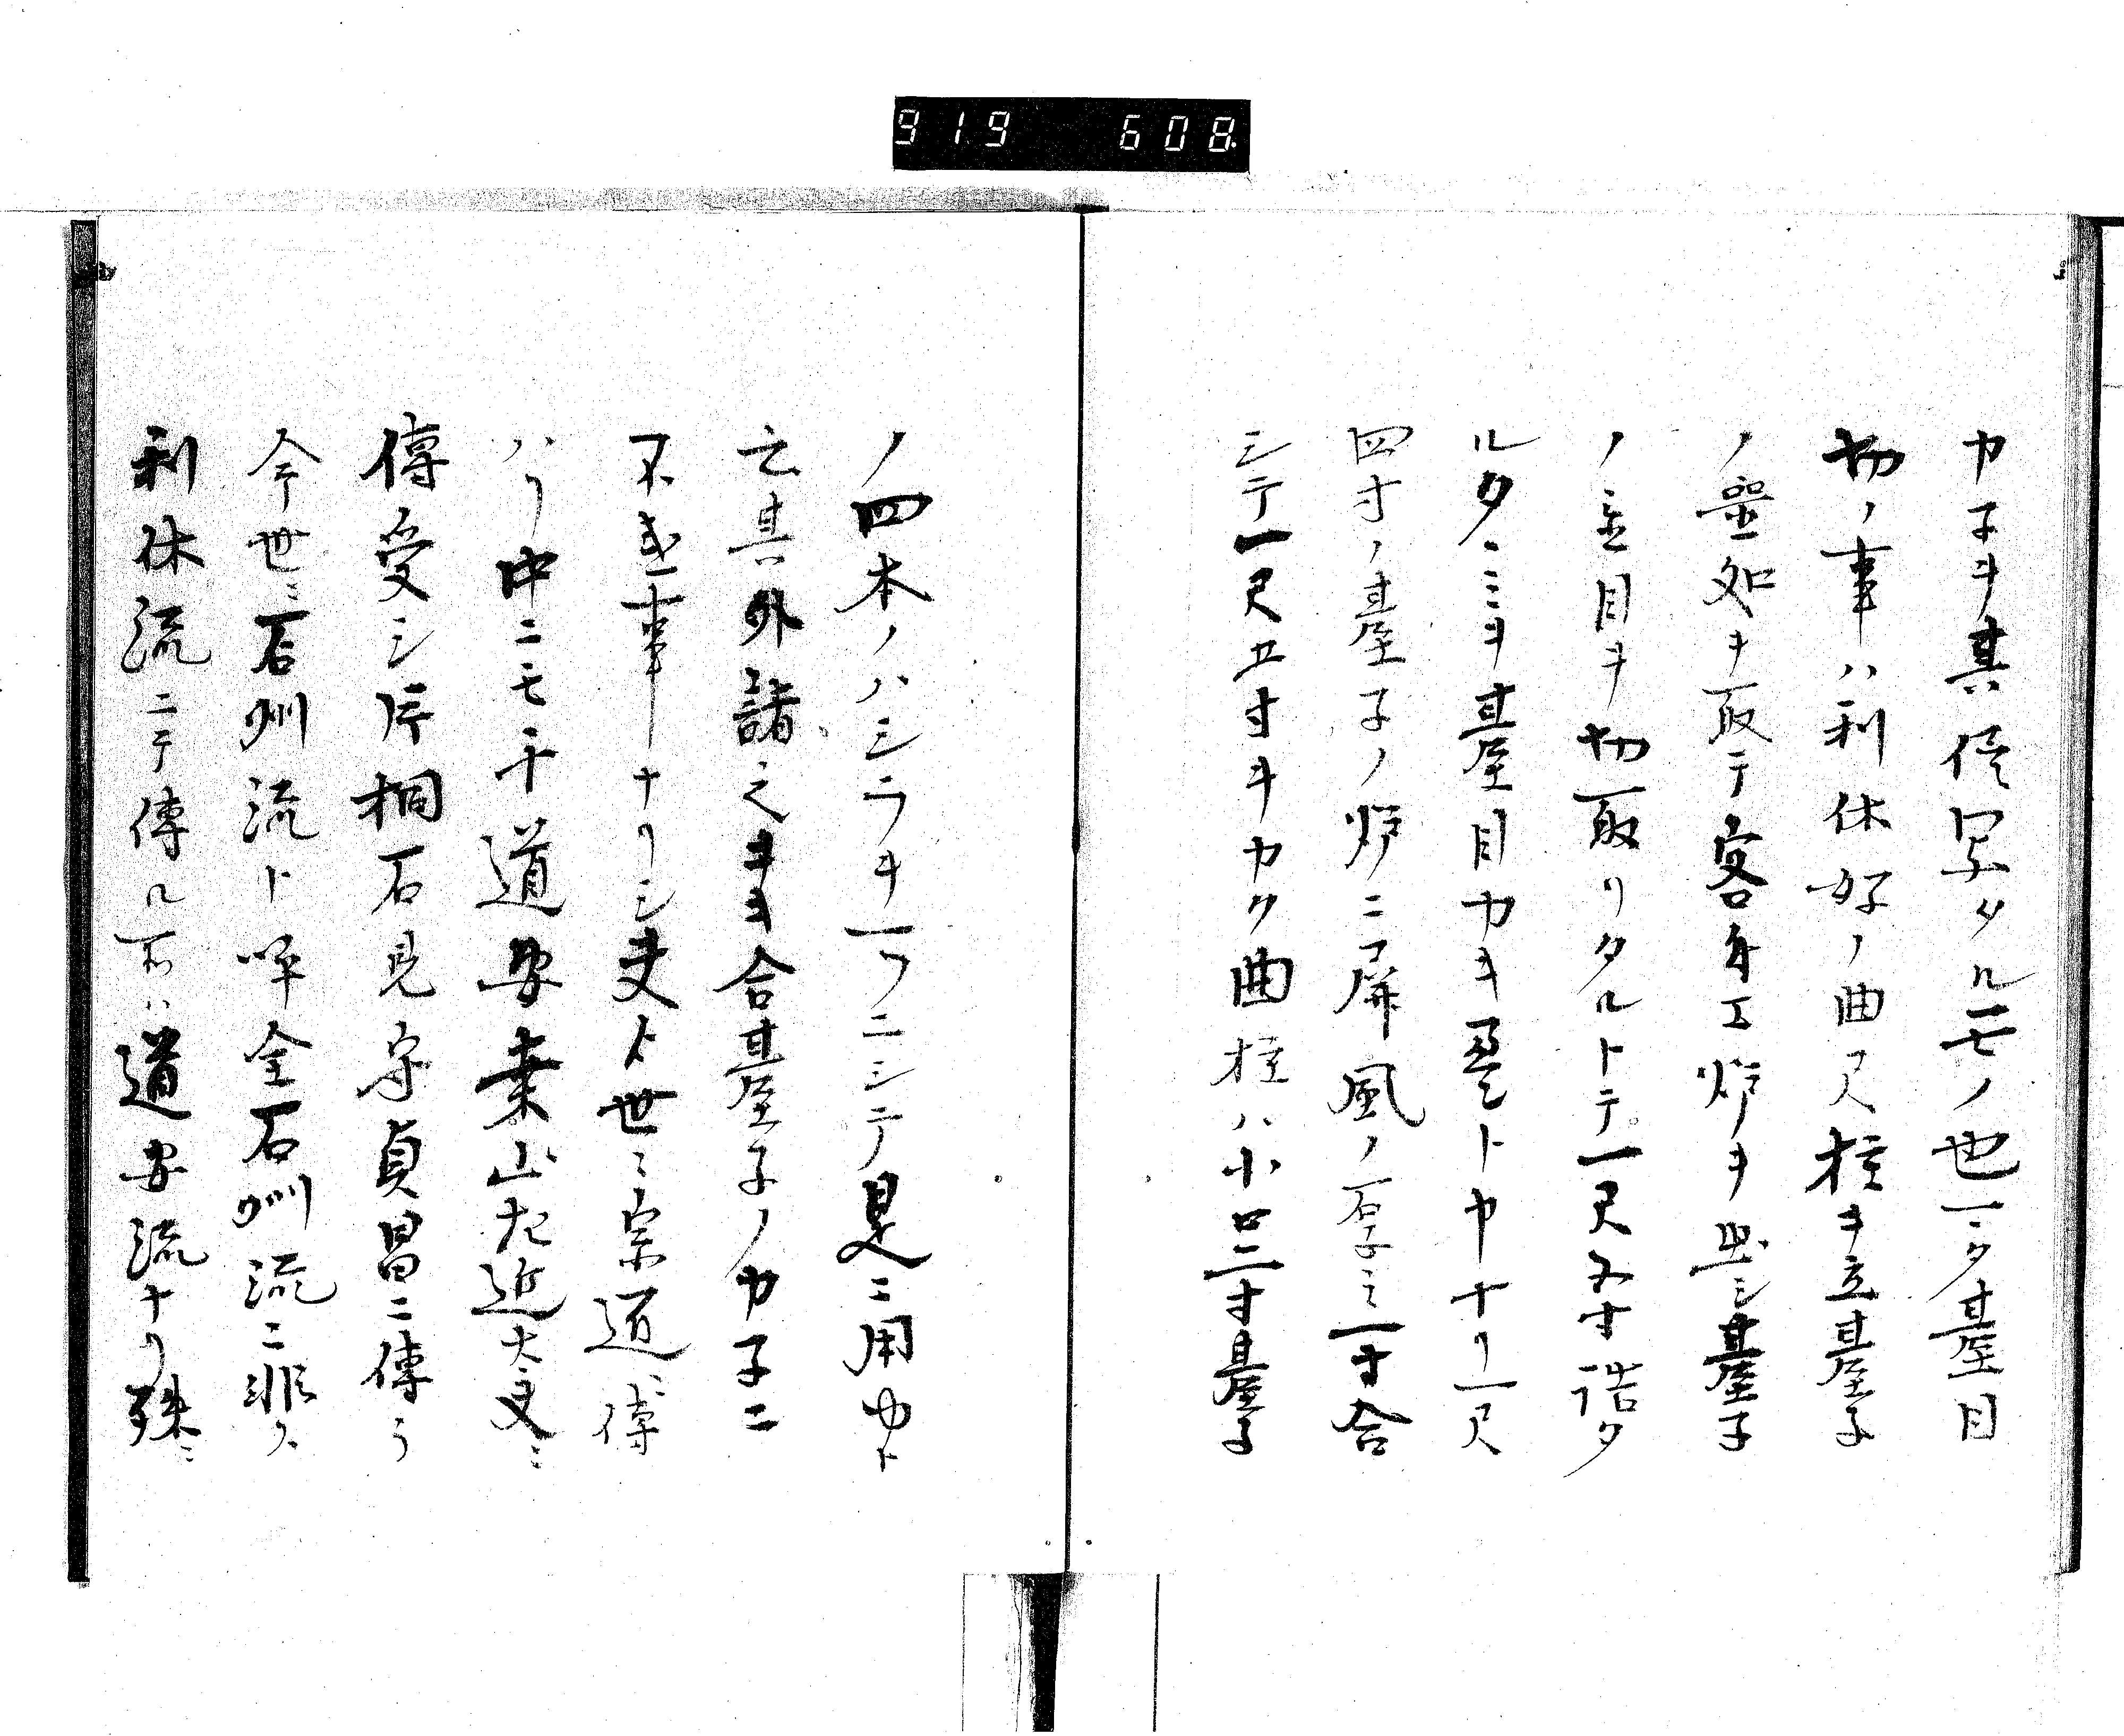 919 608
カ子ヲ其侭写タルモノ也一ミク臺目
切ノ事ハ利休好ノ曲尺柱ヲ立臺子
ノ置処ヲ取テ客身エ炉ヲ出シ臺子
ノ疊目ヲ切取リタルトテ一尺五寸詰タ
ルタヽミヲ臺目カキ疊ト申ナリ一尺
四寸ノ臺子ノ炉ニ屏風ノ厚ミ一寸合
シテ一尺五寸ヲカク曲柱ハ小口二寸臺子
ノ四本ノハシラヲ一ツニシテ是ニ用ゆト
云其外諸之ヲヲ合臺子ノカ子ニ
不違事ナリシ夫ト世ニ宗道ノ傳
ハリ中ニモ千道安桒山左近大夫ニ
傳受シ片桐石見守貞昌ニ傳う
今世ニ石州流ト呼全石州流ニ非ス
利休流ニテ傳ル所ハ道安流ナリ殊ニ